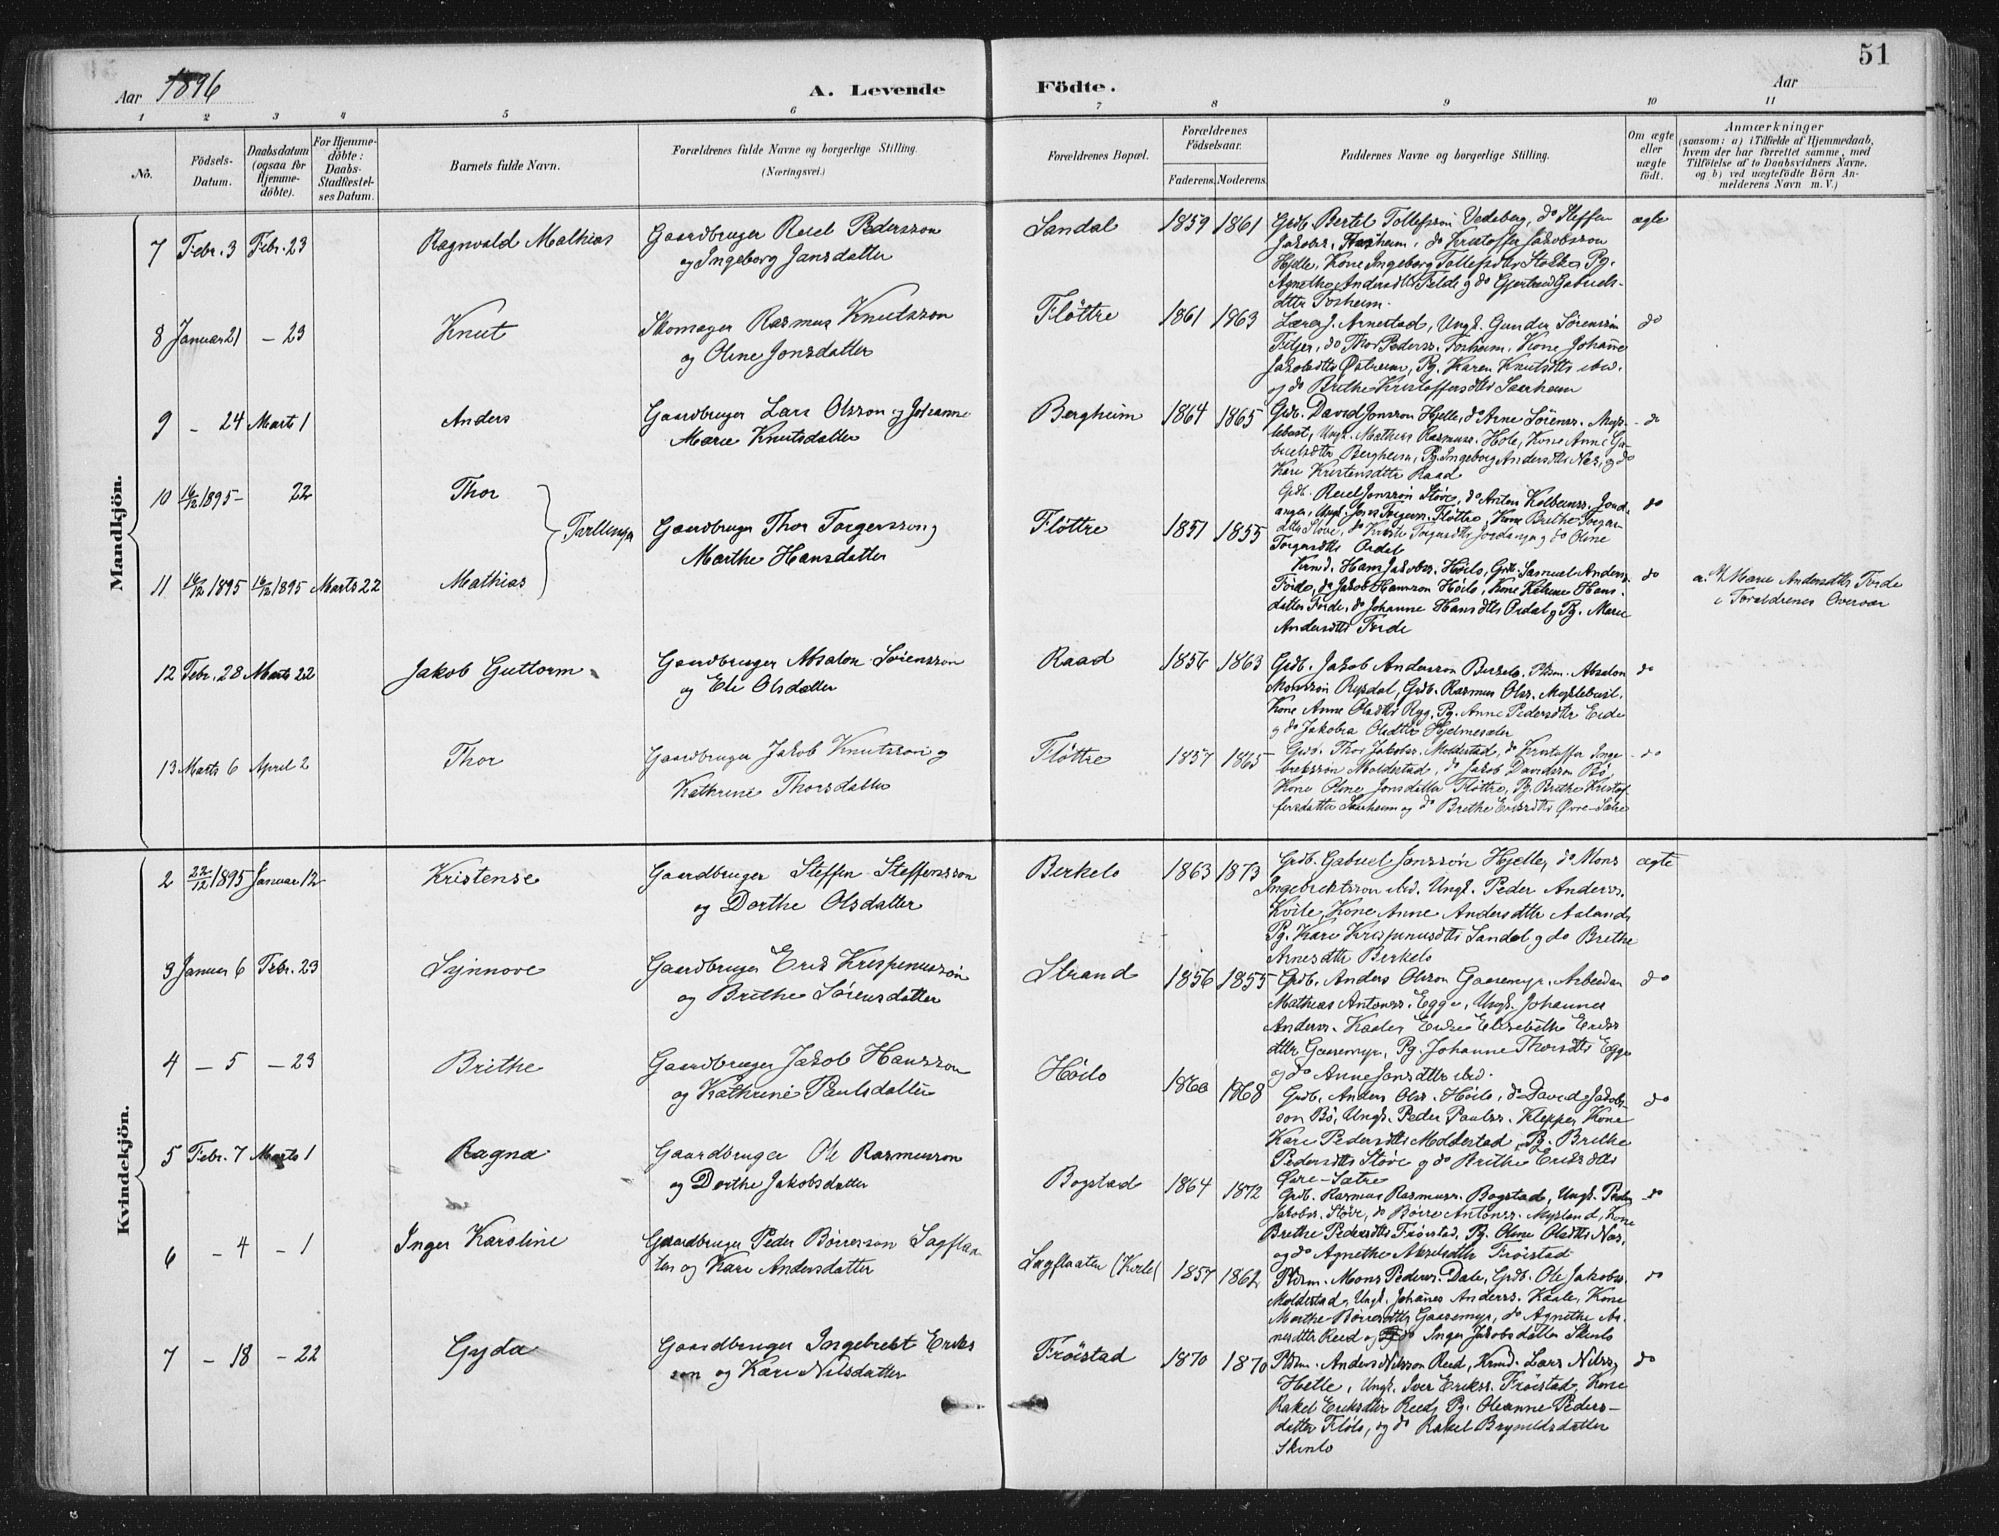 51
Aar 1896
A. Levende
Födte.
Aar
1 2 3 4 5 6 7 8 9 10 11
No.
Födsels-
Datum.
Daabsdatum
(ogsaa for
Hjemme-
döbte).
For Hjemme-
döbte:
Daabs-
Stadfæstel-
ses Datum.
Barnets fulde Navn.
Forældrenes fulde Navne og borgerlige Stilling.
(Næringsvei.)
Forældrenes Bopæl.
Forældrenes
Födselsaar.
Faderens. Moderens.
Faddernes Navne og borgerlige Stilling.
Om ægte
eller
uægte
födt.
Anmærkninger
(saasom: a) i Tilfælde af Hjemmedaab,
hvem der har forrettet samme, med
Tilföielse af to Daabsvidners Navne,
og b) ved uægtefödte Börn An-
melderens Navn m. V.)
Mandkjön.
7 Febr. 3 Febr. 23 Ragnvald Mathias
Gaardbruger Reiel Pedersson
og Ingeborg Jansdatter
Sandal 1859 1861
Grdb. Bertel Tollefssøn Vedeberg, do Steffen
Jakobs. Fosheim, do Kristoffer Jakobsson
Hjelle, Kone Ingeborg Tollefsdtr
Agnethe Andersdtr Felde og do Gjertrud Gabriels-
dtter Fosheim.
ægte
8 Januar 21 – 23 Knut
Skomager Rasmus Knutsson
og Oline Jonsdatter
Fløttre 1861 1863
Lærer J. Arnestad, Ungk. Gunder Sørenssøn
do Thor Pederss. Fosheim, Kone Johanne
Jakobsdtr Østreim, Pg. Karen Knutsdtr ibid.
og do Brithe Kristoffersdtr Saarheim
do
9 – 24 Marts 1 Anders
Gaardbruger Lars Olsson og Johanne
Marie Knutsdatter
Bergheim 1864 1865
Grdb. David Jonsson Hjelle, do Arne Sørenss. Myk-
lebust, Ungk. Mathias Rasmuss. Hole, Kone Anne Ga-
brielsdtr Bergheim, Pg. Ingeborg Andersdtr Nes, og do
Kari Kristensdtr Raad
do
10 16/12 1895 – 22 Thor
Tvillinger
Gaardbruger Thor Torgersson og
Marthe Hansdatter
Fløttre 1851 1855
Grdb. Reiel Jonssøn Støve, do Anton Kolbeinss. Jord-
anger, Ungk. Jens Torgerss. Fløttre, Kone Brithe Torgers-
dtter Støve, do Kirste Torgersdtr Jordanger og do Oline
Torgersdtr Ordal
do
11 16/12 1895 16/12 1895 Marts 22 Mathias
Krmd. Hans Jakobss. Høilo, Grdb. Samuel Anderss.
Førde, do Jakob Hansson Høilo, Kone Katrine Hans-
datter Førde, do Johanne Hansdtr Ordal og Pg. Marie
Andersdtr Førde
do
a. Marie Andersdtr Førde
i Foreldrenes Overvær
12 Febr. 28 Marts 22 Jakob Guttorm
Gaardbruger Absalon Sørensson
og Eli Olsdatter
Raad 1856 1863
Grdb. Jakob Anderssøn Birkelo, Pldsm. Absalon
Monssøn Rysdal, Grdb. Rasmus Olss. Myklebust,
Kone Anne Olsdtr Rygg, Pg. Anne Pedersdtr Eide
og do Jakobra Olsdtr Hjelmesæter
do
13 Marts 6 April 2 Thor
Gaardbruger Jakob Knutsson og
Kathrine Thorsdatter
Fløttre 1857 1865
Grdb. Thor Jakobss. Moldestad, do Kristoffer Inge-
brektssøn Moldestad, do Jakob Davidsson Bø,
Kone Oline Jonsdatter Fløttre, Pg. Brithe Kristof-
fersdatter Saarheim og do Brithe Eriksdtr Øvre-Sætre
do
Kvindekjön.
2 22/12 1895 Januar 12 Kristense
Gaardbruger Steffen Steffensson
og Dorthe Olsdatter
Birkelo 1863 1873
Grdb. Gabriel Jonssøn Hjelle, do Mons
Ingebrektsson ibid. Ungk. Peder Anderss.
Kvile, Kone Anne Andersdttr Aaland,
Pg. Kari Krispinusdtr Sandal og do Brithe
Arnesdtr Birkelo
ægte
3 Januar 6 Febr. 23 Synnove
Gaardbruger Erik Krispinussøn
og Brithe Sørensdatter
Strand 1856 1855
Grdb. Anders Olsson Gaasemyr, Arbeidsm.
Mathias Antonss. Egge, Ungk. Johannes
Anderss. Kaale, Enke Elisabethe Eriks-
dttr Gaasemyr, Pg. Johanne Thorsdtr Egge
og do Anne Jonsdttr ibid.
do
4 – 5 – 23 Brithe
Gaardbruger Jakob Hansson
og Kathrine Paulsdatter
Høilo 1860 1868
Grdb. Anders Olss. Høilo, do David Jakobs-
son Bø, Ungk. Peder Paulss. Klepper, Kone
Kari Pedersdtr Moldestad, Pg. Brithe
Pedersdtr Støve og do Brithe Eriksdtr
Øvre-Sætre
do
5 Febr. 7 Marts 1 Ragna
Gaardbruger Ole Rasmusson
og Dorthe Jakobsdatter
Bogstad 1864 1872
Grdb. Rasmus Rasmuss. Bogstad, Ungk. Peder
Jakobss. Støve, do Børre Antonss. Mykland, Kone
Brithe Pedersdtr Frøistad, Pg. Oline Olsdtr Nos,
og do Agnethe Akselsdtr Frøistad
do
6 – 4 – 1 Inger Karoline
Gaardbruger Peder Børresson Sagflaa-
ten og Kari Andersdatter
Sagflaaten (Kvile) 1857 1862
Pldsm. Mons Pederss. Dale, Grdb. Ole Jakobss.
Moldestad, Ungk. Johanes Anderss. Kaale, Kone
Marthe Børresdttr Gaasemyr, do Agnethe Ar-
nesdttr Reed og do Inger Jakobsdatter Skinlo
do
7 – 18 – 22 Gyda
Gaardbruger Ingebrekt Eriks-
son og Kari Nilsdatter
Frøistad 1870 1870
Pldsm. Anders Nilsson Reed, Krmd. Lars Nilss.
Hetle, Ungk. Iver Erikss. Frøistad, Kone
Rakel Eriksdtr Reed, Pg. Oleanne Peders-
datter Fløto, og do Rakel Brynildsdatter
Skinlo
do